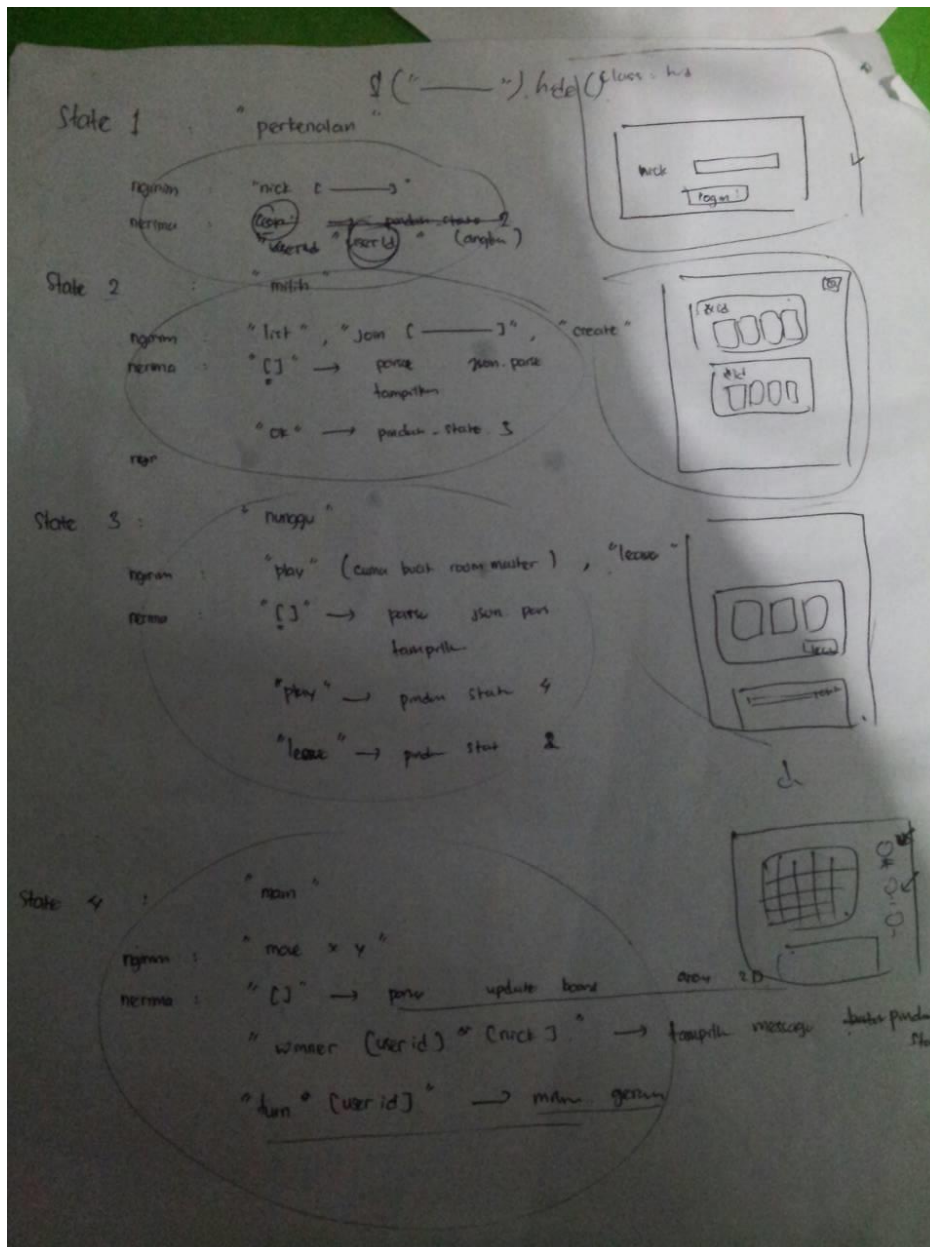 $ ("———").hide()
class: hid
State 1 : "perkenalan"
ngirim : "nick [———]"
nerima :
"userid "userid" " (angka)
nick
login
State 2 : "milih"
ngirim : "list", "join [———]", "create"
nerima : "[]" → parse json.parse
tampilkn
"ok" → pindah state 3
State 3 : "nunggu"
ngirim : "play" (cuma buat room master), "leave"
nerima : "[]" → parse json pars
tampilk
"play" → pindah state 4
"leave" → pindh stat 2
State 4 : "main"
ngirim : "move x y"
nerima : "[]" → parse update board array 2D
"winner [user id] [nick]" → tampilk message pindah
"turn" [user id]" →